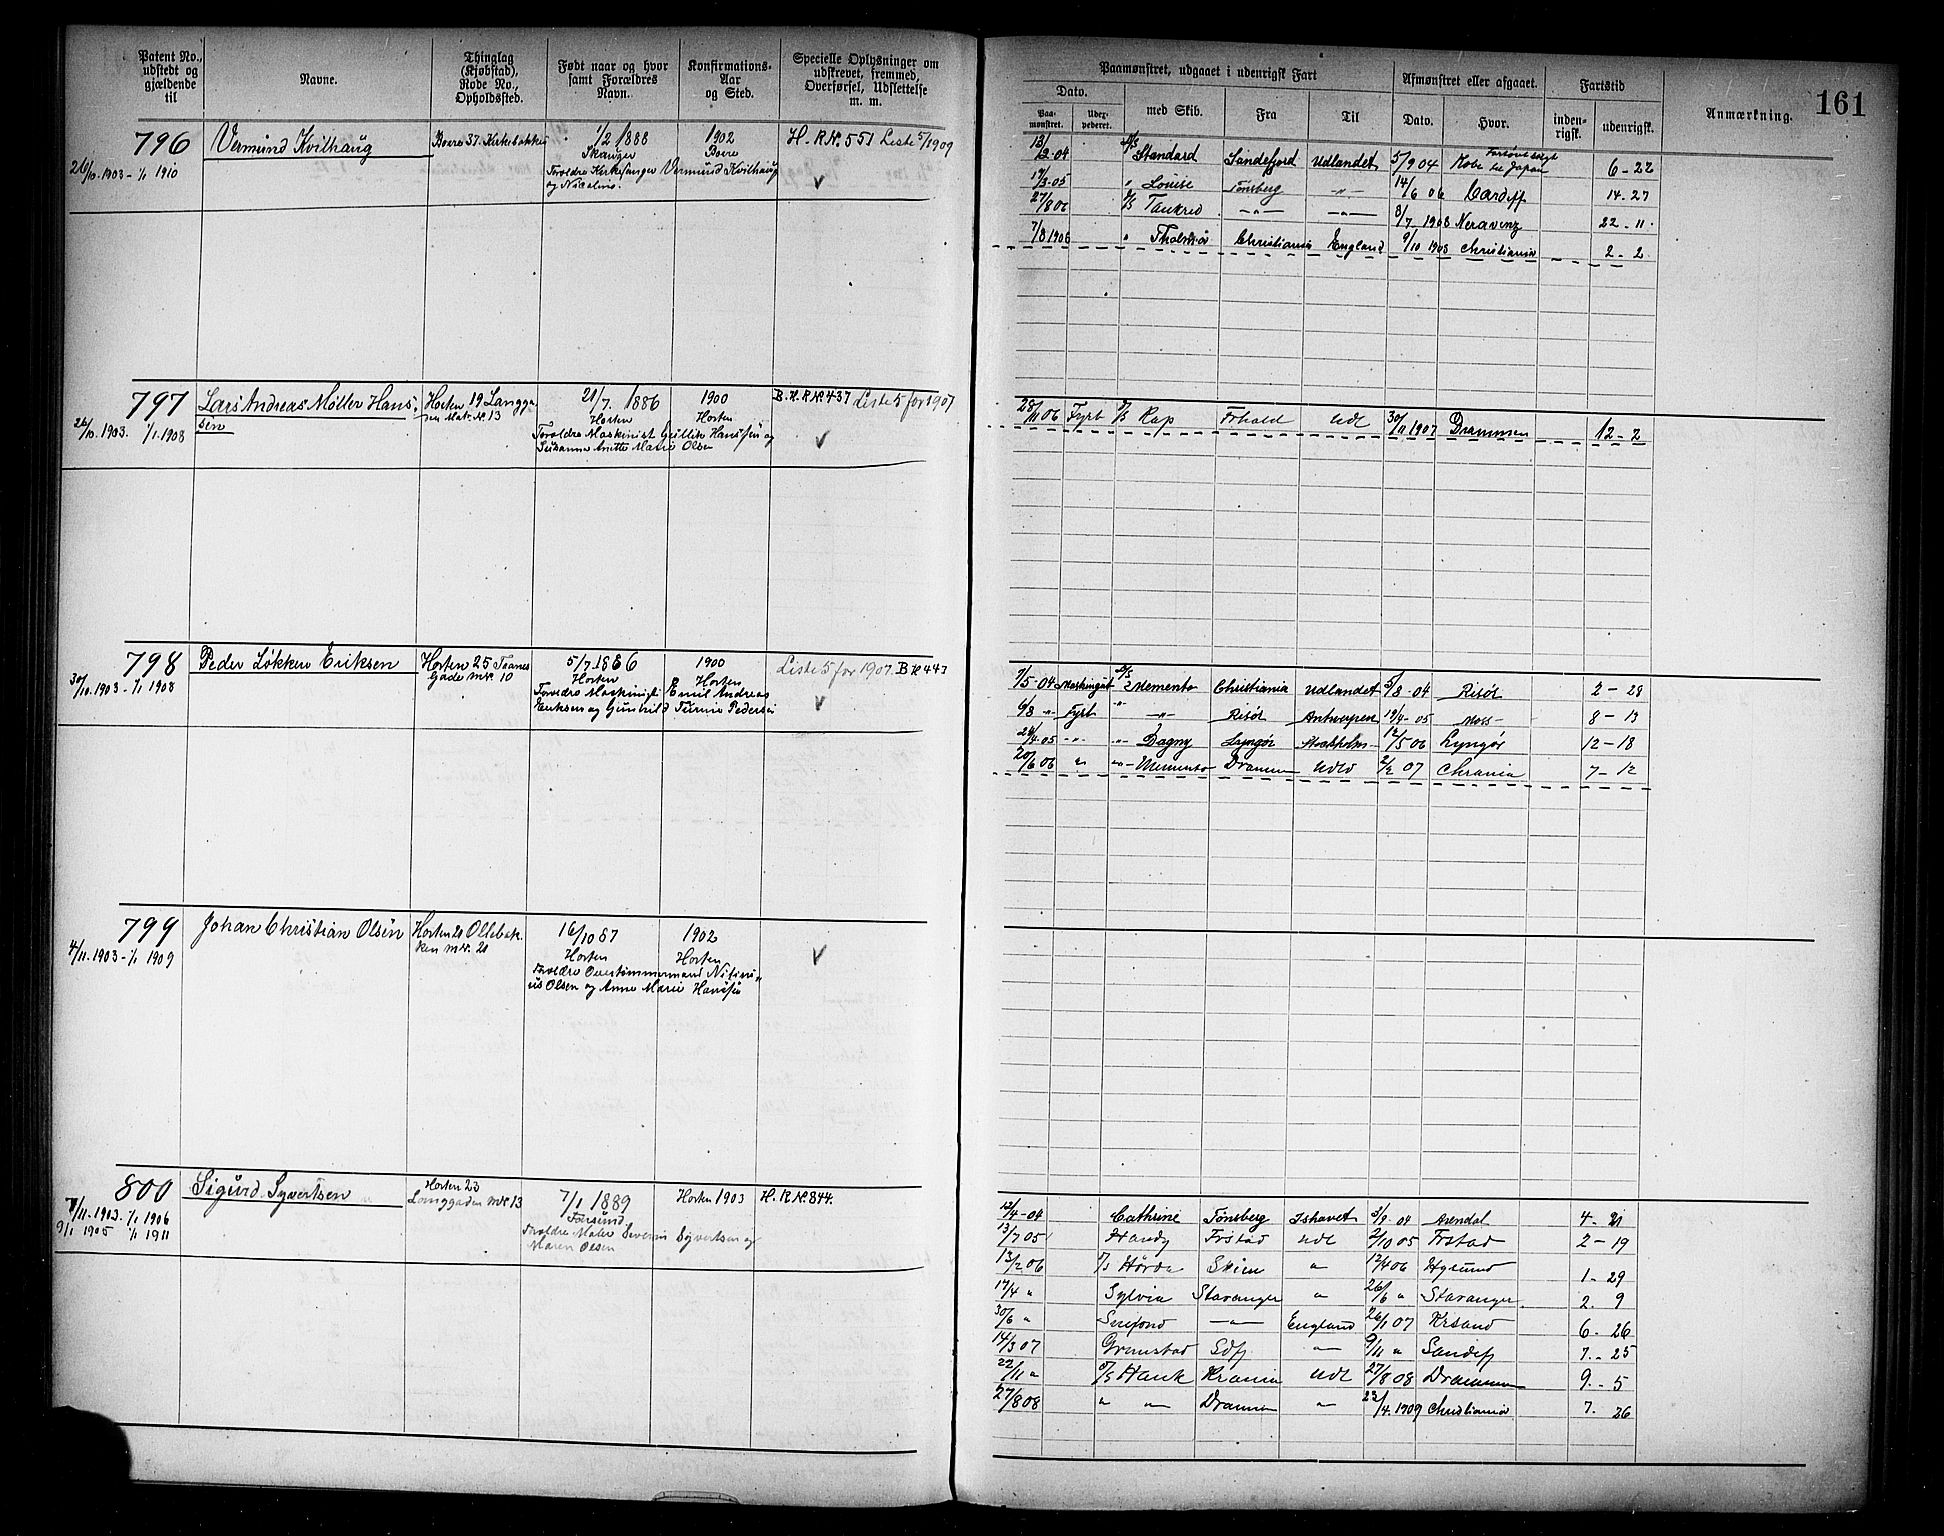 Patent No., udstedt og gjældende til
Navne.
Thinglag (Kjøbstad), Rode No., Opholdssted.
Født naar og hvor samt Forældres Navn.
Konfirmations-Aar og Sted.
Specielle Oplysninger om udskrevet, fremmed, Overførsel, Udslettelse m. m.
796
26/10.1903 - 1/1 1910
Vermund Kvilhaug
Borre 37. Kirkebakken
1/2 1888
Skauger
Forældre Kirkesanger Vermund Kvilhaug
og Nicoline.
1902
Borre
H. R. Nr. 551 Liste 5/1909
797
26/10.1903. 1/1.1908
Lars Andreas Møller Hans-
sen
Horten 19 Langga-
den Mat. Nr. 13
21/7. 1886
Horten
Forældre Maskinist Gullik Hanssen og
Susanne Anette Marie Olsen
1900
Horten
B. H. R Nr. 437 Liste 5 for 1907
798
30/10.1903 - 1/1 1908
Peder Løkken Eriksen
Horten 25
Gade mNr. 10
5/7 1886
Horten
Forældre Maskinist Emil Andreas
Eriksen og Gunhild Turine Pedersen
1900
Horten
Liste 5 for 1907. B Nr 443
799
4/11.1903 - 1/1 1909
Johan Christian Olsen
Horten 20 Ollebak-
ken mNr. 20
16/10 87
Horten
Forældre Overtømmermand
Olsen og Anne Marie Hanssen
1902
Horten
800
7/11.1903. 1/1 1906
9/1 1905 1/1 1911
Sigurd Syvertsen
Horten 23
Langgaden mNr. 13
7/1 1889
Farsund
Forældre Maler Severin Syvertsen og
Maren Olsen
Horten 1903
H. R Nr. 844.
161
Paamønstret, udgaaet i udenrigsk Fart
Afmønstret eller afgaaet.
Fartstid
Anmærkning.
Dato.
Paa-mønstret.
Udex-pederet.
med Skib.
Fra
Til
Dato.
Hvor.
inden-rigsk.
udenrigsk.
13/2-04 Standard Sandefjord Udlandet 5/9 04 Kobe Japan 6-22
17/3-05 " Louise Tønsberg -"- 14/6 06 Cardiff 14-27
27/8 06 D/S Tankred -"- -"- 8/7 1908 22-11
7/8 1908 " Christiania England 9/10 1908 Christiania 2-2
28/11 06 Fyrb D/S Kap Frhald Udl 30/11 1907 Drammen 12-2
7/5-04 D/S Memento Christiania Udlandet 5/8-04 Risør 2-28
6/8 " Fyrb " -"- Risør Antwerpen 19/4-05 Moss 8-13
24/4.05 -"- -"- Dagny Lyngør Stockholm 12/5 06 Lyngør 12-18
20/6 06 " "- Memento Drammen Udld 2/2 07 Chrania 7-12
12/4-04 Cathrine Tønsberg Ishavet 3/9-04 Arendal 4-21
13/7 05 Handy Frstad Udl 2/10 05 Frstad 2-19
13/2 06 D/S Hørda Skien " 12/4 06 1-29
17/4 " Sylvia Stavanger " 26/6 " Stavanger 2. 9
30/6 " -"- England 26/1 07 Krsand 6-26
14/3 07 Grimstad Sdfj -"- 9/11 " Sandefj 7.-25
22/11 " D/S Hauk Krania Udl 27/8 08 Drammen 9.-5
27/8 08 " -"- Drammen -"- 23/4.1909 Christiania 7. 26